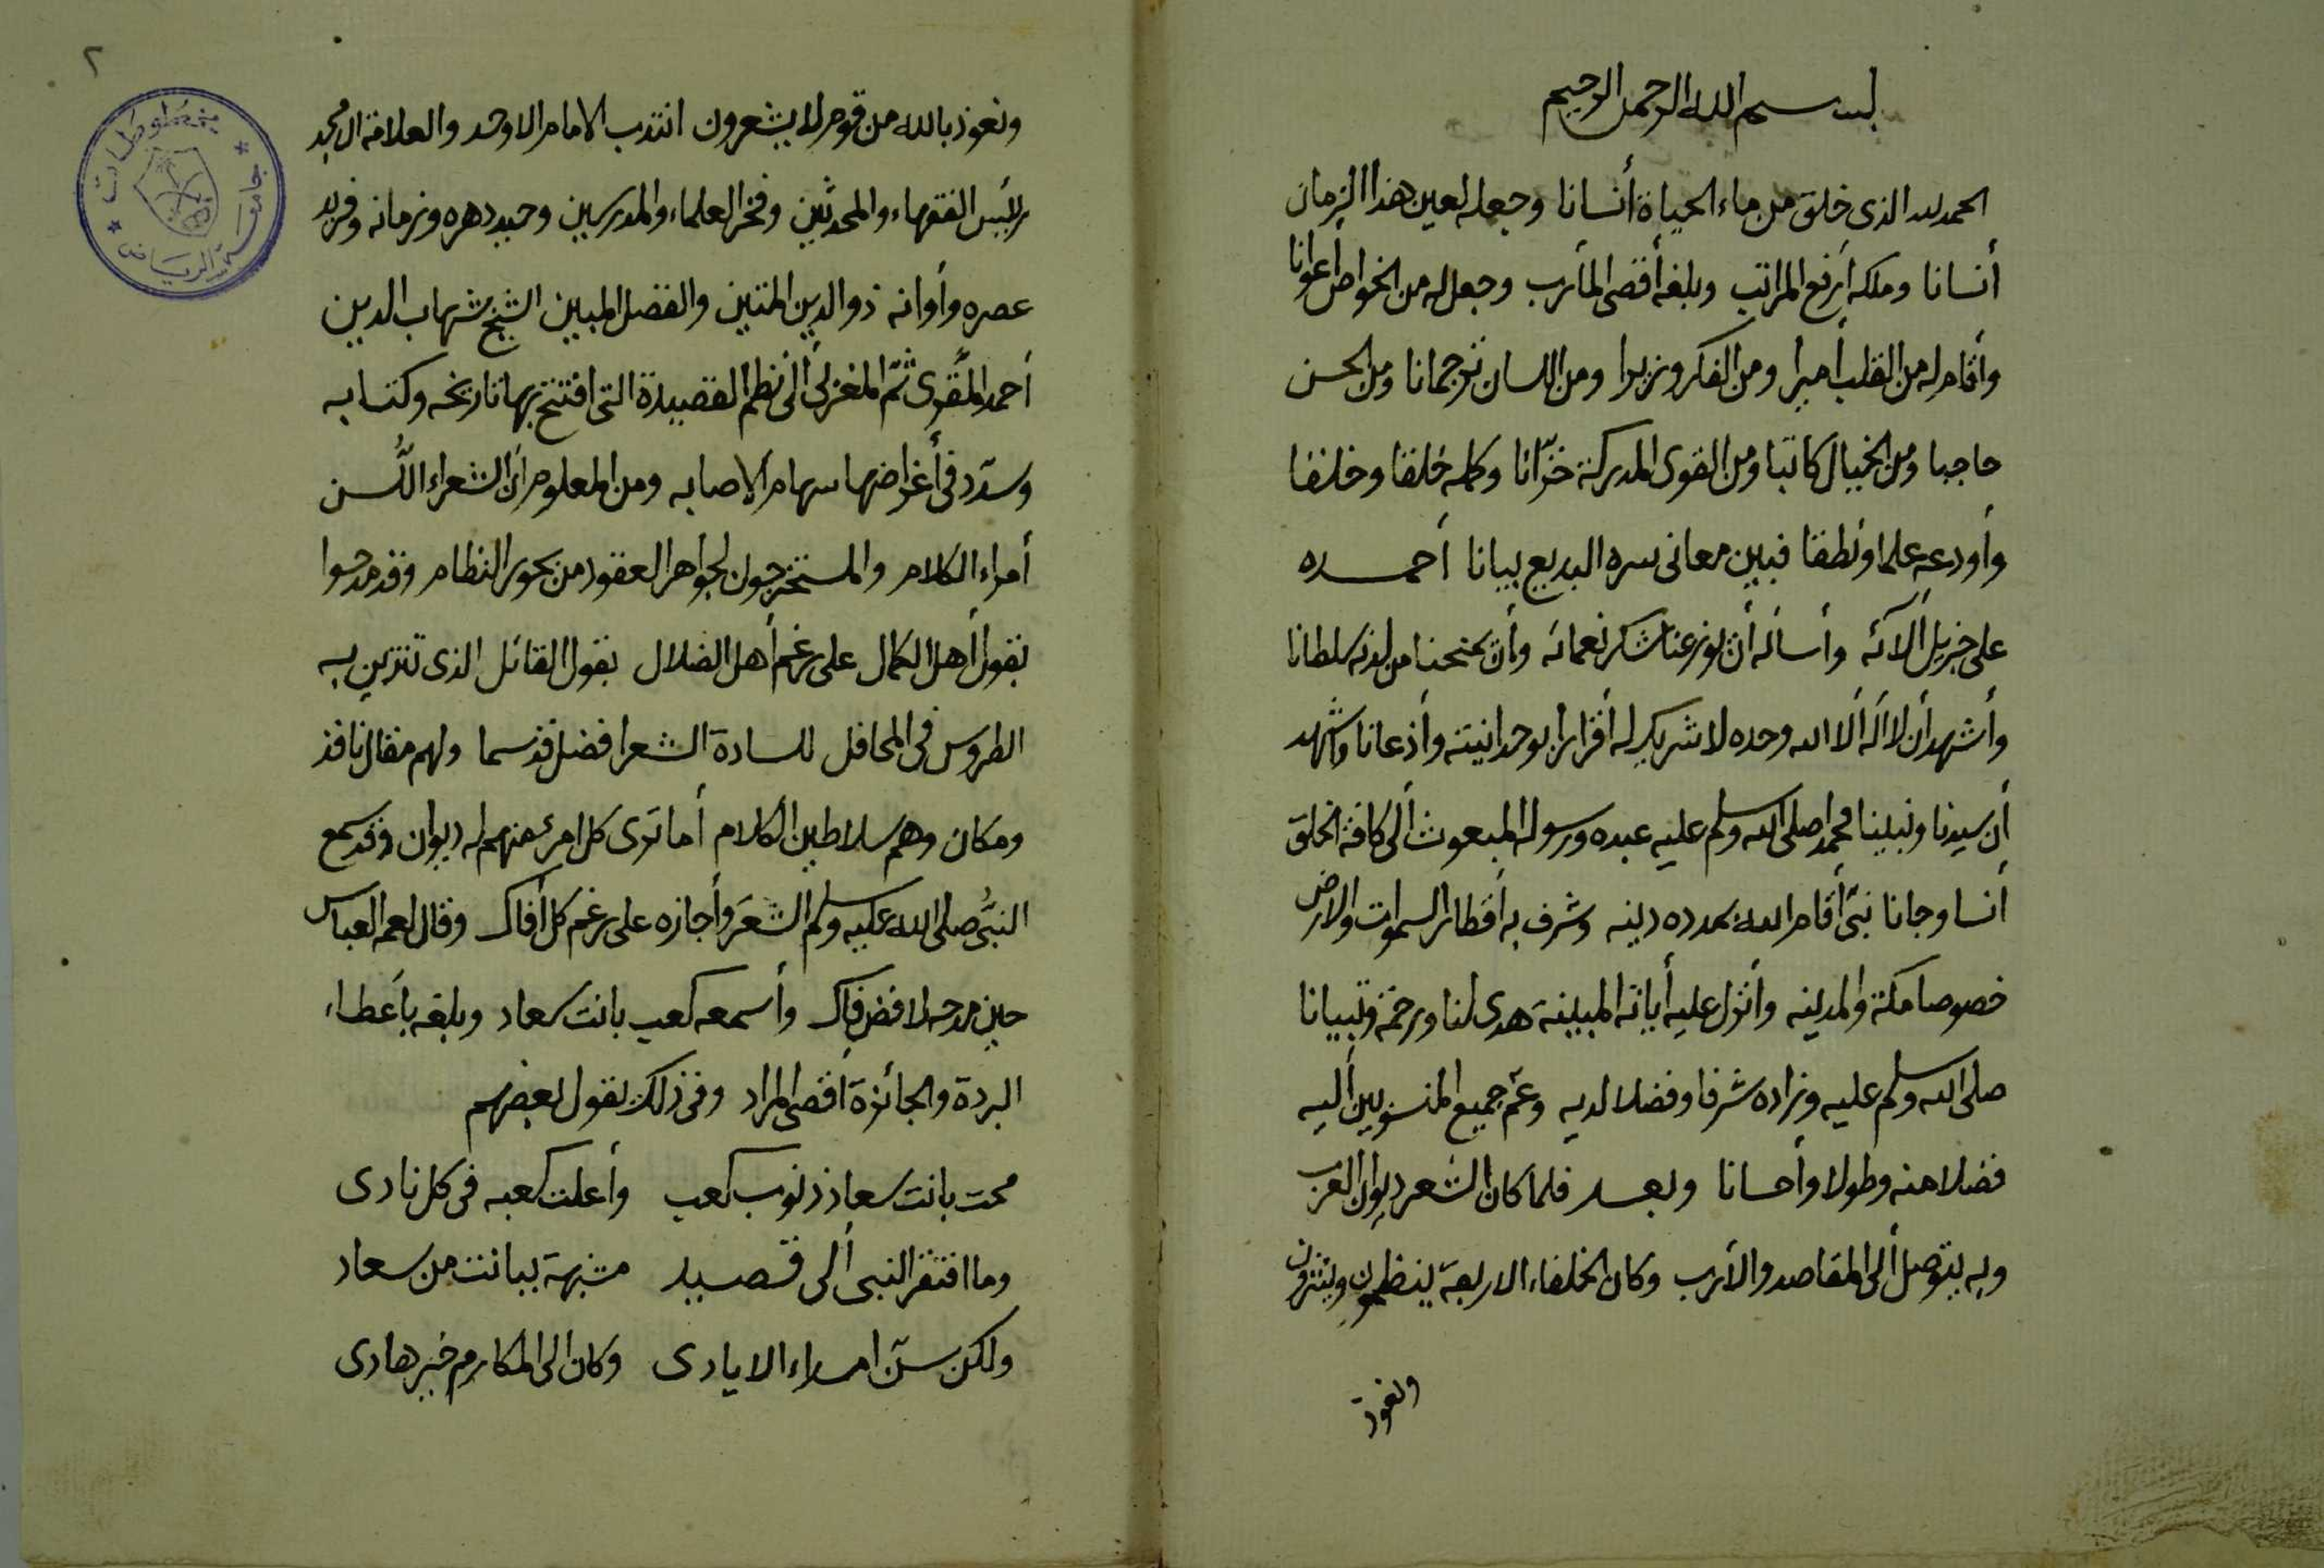 بسم الله الرحمن الرحيم
الحمد لله الذى خلق من ماء الحياة أنسانا وجعله لعين هذا الزمان
أنسانا وملكه أرفع المراتب وبلغه أقصى المأرب وجعل له من الخواص أعوانا
وأقام له من القلب أميرا ومن الفكر وزيرا ومن اللسان ترجمانا ومن الحسن
حاجبا ومن الخيال كاتبا ومن القوى المدركة خزّانا وكمله خلقا وخلقا
وأودعه علما ونطقا فبين معانى سره البديع بيانا أحمده
على جزيل ألآئه وأسأله أن يوزعنا شكر نعمائه وأن يمنحنا من لدنه سلطانا
وأشهد أن لا أله ألا الله وحده لا شريك له أقرارا بوحدانيته وأذعانا وأشهد
أن سيدنا ونبينا محمدا صلى الله وسلم عليه عبده ورسوله المبعوث ألى كافة الخلق
أنسا وجانا نبىّ أقام الله بمدده دينه وشرف به أقطار السموات والارض
خصوصا مكة والمدينه وأنزل عليه أياته المبينة هدى لنا ورحمة وتبيانا
صلى الله وسلم عليه وزاده شرفا وفضلا لديه وعمّ جميع المنسوبين أليه
فضلا منه وطولا وأحسانا وبعد فلما كان الشعر ديوان العرب
وبه يتوصل ألى المقاصد والأرب وكان الخلفاء الاربعة ينظمون وينثرون
ونعوذ
٢
مخطوطات
جامعة الرياض
ونعوذ بالله من قوم لا يشعرون انتدب الامام الاوحد والعلامة الامجد
رئيس الفقهاء والمحدثين وفخر العلماء والمدرسين وحيد دهره وزمانه وفريد
عصره وأوانه ذو الدين المتين والفضل المبين الشيخ شهاب الدين
أحمد المقّرى ثمّ المغزلى ألى نظم القصيدة التى افتتح بها تاريخه وكتابه
وسدّد فى أغراضها سهام الاصابه ومن المعلوم أن الشعراء اللُّسن
أمراء الكلام والمستخرجون لجواهر العقود من بحور النظام وقد مدحوا
بقول أهل الكمال على رغم أهل الضلال بقول القائل الذى تتزين به
الطروس فى المحافل للسادة الشعرا فضل قد سما ولهم مقال نافذ
ومكان وهم سلاطين الكلام أما ترى كل امرئ منهم له ديوان وقد سمع
النبىُّ صلى الله عليه وسلم الشعر وأجازه على رغم كل أفاك وقال لعمه العباس
حين مدحه لا فض فاك وأسمعه كعب بانت سعاد وبلغه بأعطاء
البردة والجائزة أقصى المراد وفى ذلك يقول بعضهم
محت بانت سعاد ذنوب كعب وأعلت كعبه فى كل نادى
وما افتقر النبى ألى قصيد مشبهة ببانت من سعاد
ولكن سنّ امراء الايادى وكان الى المكارم خير هادى